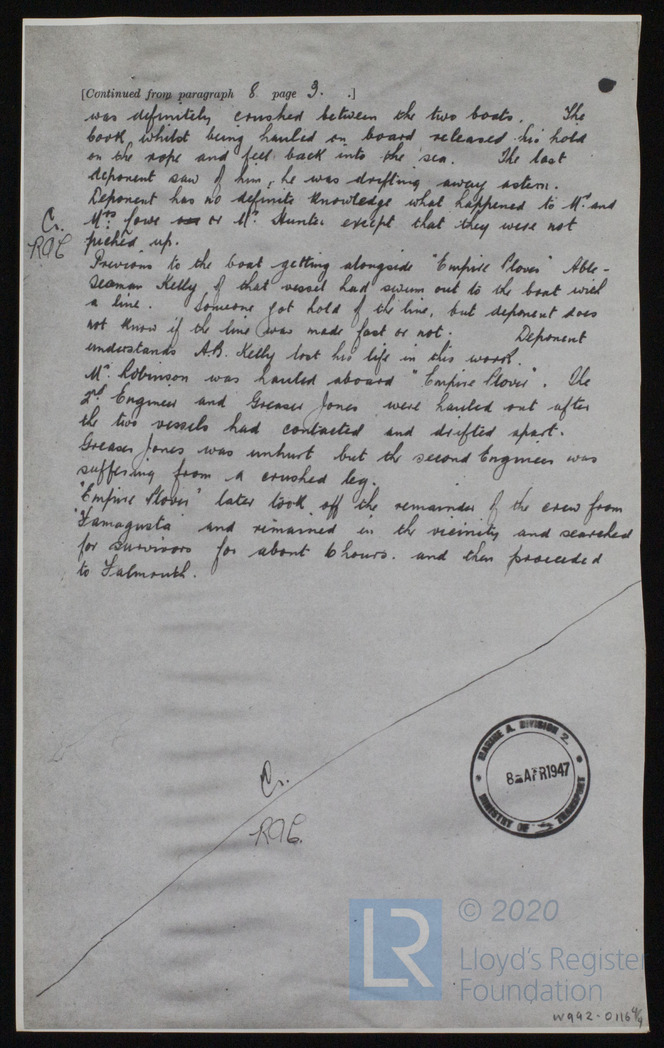 [Continued from paragraph 8 page 3. .]
was definitely crushed between the two boats. The
Cook, whilst being hauled on board released his hold
on the rope and fell back into the sea. The last
deponent saw of him, he was drifting away astern.
Deponent has no definite knowledge what happened to Mr. and
Mrs. or Mr. Hunter except that they were not
picked up.
Cr.
RAC
Previous to the boat getting alongside "Empire Plover" Able-
Seaman Kelly of that vessel had swum out to the boat with
a line. Someone got hold of the line, but deponent does
not know if the line was made fast or not. Deponent
understands A.B. Kelly lost his life in this work.
Mr. Robinson was hauled aboard "Empire Plover". The
2nd Engineer and Greaser Jones were hauled out after
the two vessels had contacted and drifted apart.
Greaser Jones was unhurt but the second Engineer was
suffering from a crushed leg.
"Empire Plover" later took off the remainder of the crew from
"Famagusta" and remained in the vicinity and searched
for survivors for about 6 hours. and then proceeded
to Falmouth.
Cr.
RAC.
MARINE A. DIVISION 2.
8 APR 1947
MINISTRY OF TRANSPORT
LR
© 2020
Lloyd's Register
Foundation
W992-0116 4/9